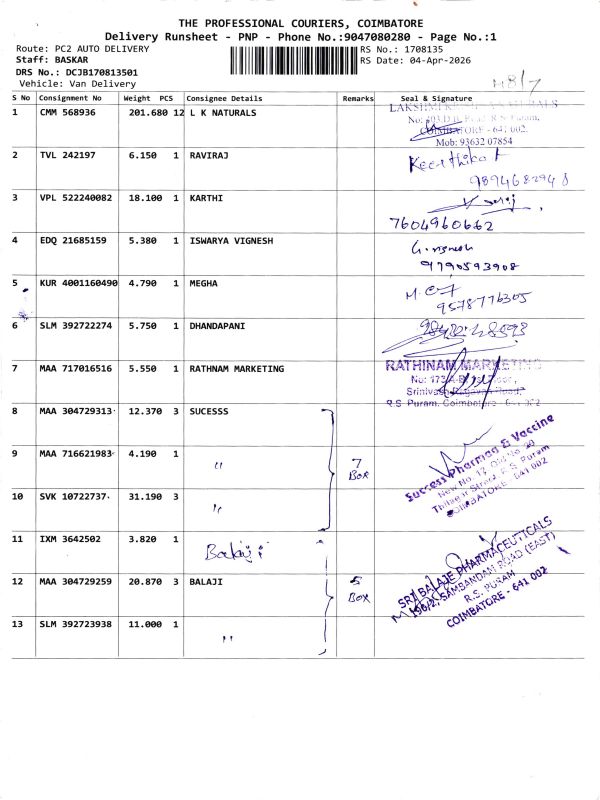 THE PROFESSIONAL COURIERS, COIMBATORE
Delivery Runsheet - PNP - Phone No.:9047080280 - Page No.:1
Route: PC2 AUTO DELIVERY RS No.: 1708135
Staff: BASKAR RS Date: 04-Apr-2026
DRS No.: DCJB170813501
Vehicle: Van Delivery
S No Consignment No Weight PCS Consignee Details Remarks Seal & Signature
1 CMM 568936 201.680 12 L K NATURALS
COIMBATORE - 641 002.
Mob: 93632 07854
2 TVL 242197 6.150 1 RAVIRAJ Keerthika
9894682948
3 VPL 522240082 18.100 1 KARTHI
7604960662
4 EDQ 21685159 5.380 1 ISWARYA VIGNESH G. vignesh
9790593908
5 KUR 4001160490 4.790 1 MEGHA
9578776305
6 SLM 392722274 5.750 1 DHANDAPANI
7 MAA 717016516 5.550 1 RATHNAM MARKETING RATHINAM MARKETING
R.S. Puram, Coimbatore - 641 002
8 MAA 304729313 12.370 3 SUCESSS
9 MAA 716621983 4.190 1 " 7 Box
10 SVK 10722737 31.190 3 "
Success Pharmaa & Vaccine
New No. 17, Old No. 20
R. S. Puram
COIMBATORE - 641 002
11 IXM 3642502 3.820 1 Balaji
12 MAA 304729259 20.870 3 BALAJI 5 Box
13 SLM 392723938 11.000 1 "
SRI BALAJE PHARMACEUTICALS
196/2, SAMBANDAM ROAD (EAST)
R.S. PURAM
COIMBATORE - 641 002